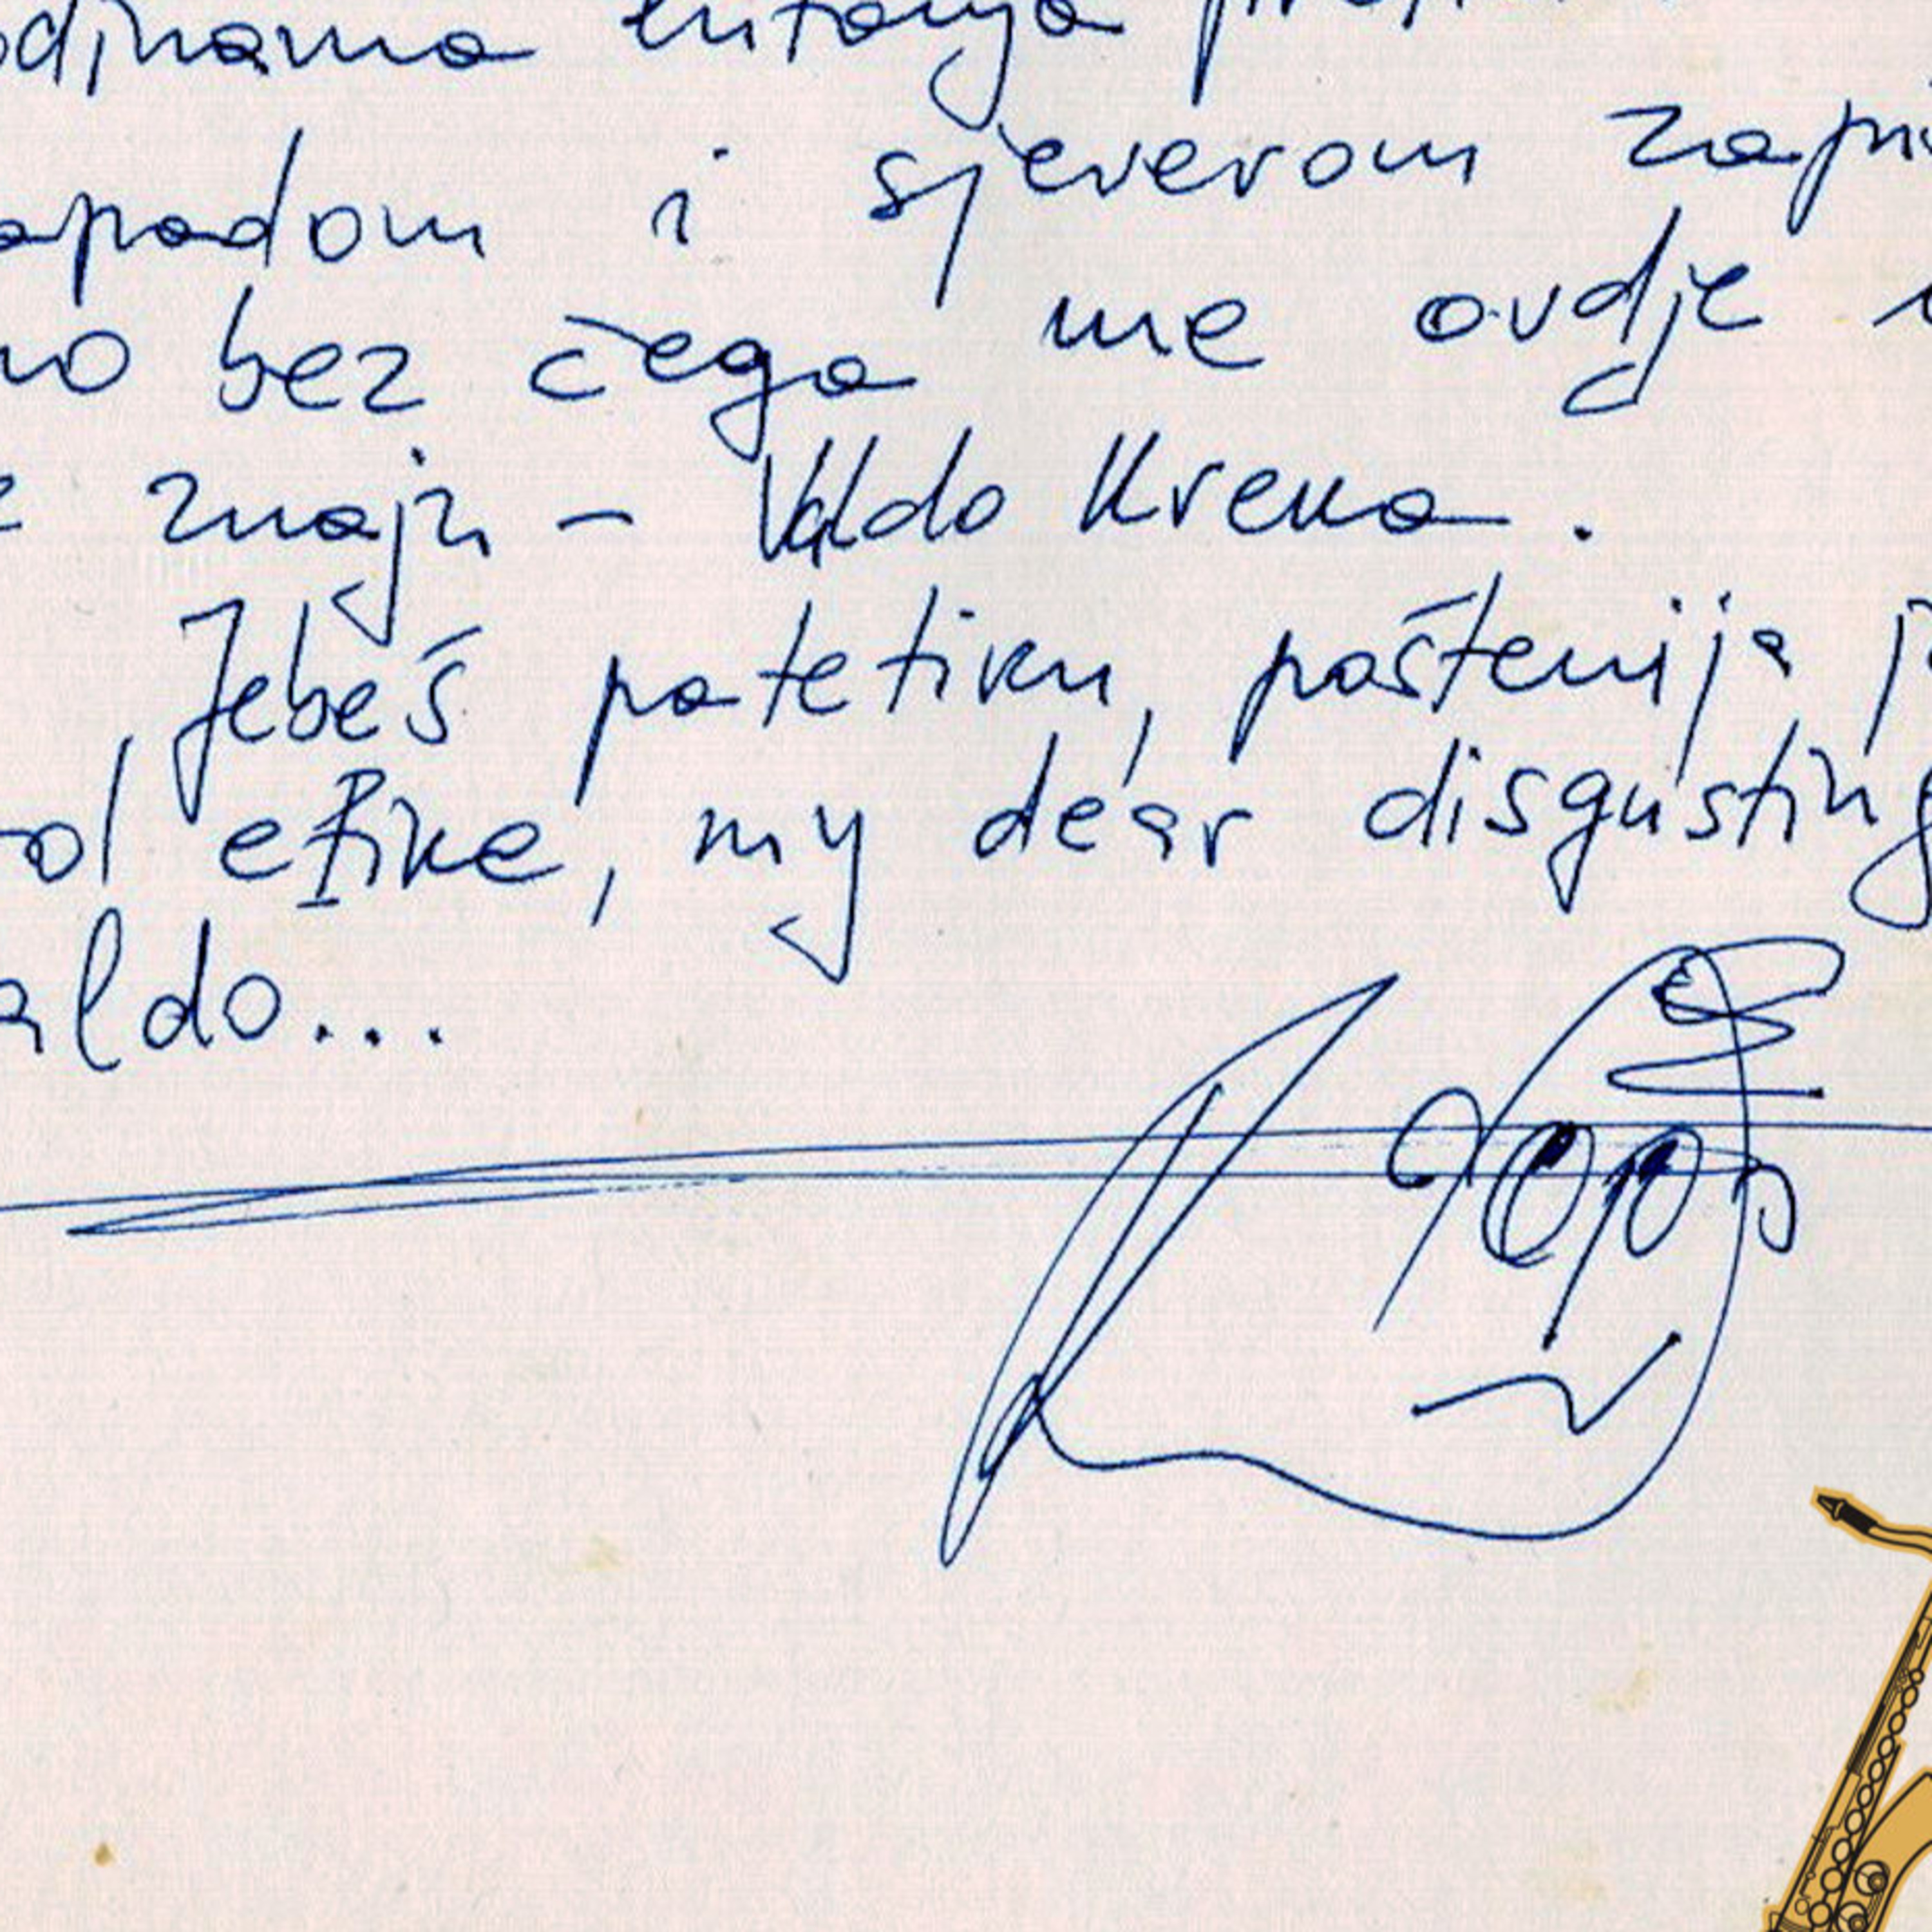 odinama lutanja
apadom i sjeverom zapi
no bez čega me ovdje
znaju - Valdo Kreka.
Jebeš patetiku, poštenija j
ol etike, my dear disgusting
aldo...